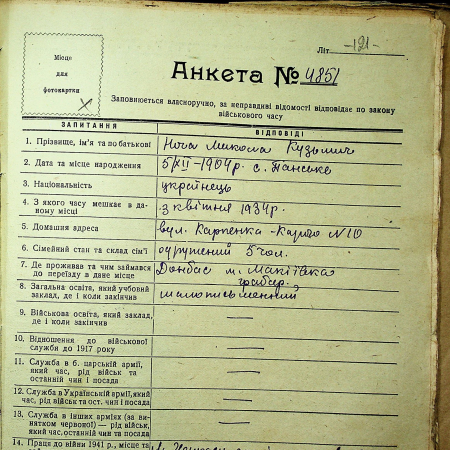 Літ. —121—
Місце
для
фотокартки
Анкета № 4851
Заповнюється власноручно, за неправдиві відомості відповідає по закону
військового часу
ЗАПИТАННЯ ВІДПОВІДІ
1. Прізвище, ім'я та по батькові Микола Кузьмич
2. Дата та місце народження 5/XII — 1904 р. с. Панське
3. Національність українець
4. З якого часу мешкає в даному місці з квітня 1934 р.
5. Домашня адреса вул. Карпенка-Карого №10
6. Сімейний стан та склад сім'ї одружений 5 чол.
7. Де проживав та чим займався Донбас м. Макіївка
до переїзду в дане місце грабар.
8. Загальна освіта, який учбовий малописьменний
заклад, де і коли закінчив
9. Військова освіта, який заклад,
де і коли закінчив
10. Відношення до військової
служби до 1917 року
11. Служба в б. царській армії,
який час, рід військ та
останній чин і посада
12. Служба в Українській армії, який
час, рід військ та ост. чин і посада
13. Служба в інших арміях (за винятком
червоної) — рід військ,
який час, останній чин та посада
14. Праця до війни 1941 р., місце та